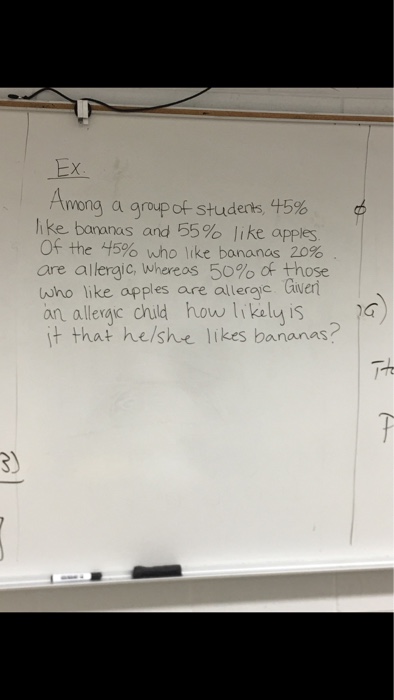 Ex.
Among a group of students, 45%
like bananas and 55% like apples.
Of the 45% who like bananas 20%
are allergic, whereas 50% of those
who like apples are allergic. Given
an allergic child how likely is
it that he/she likes bananas?
ø
a)
P
3)